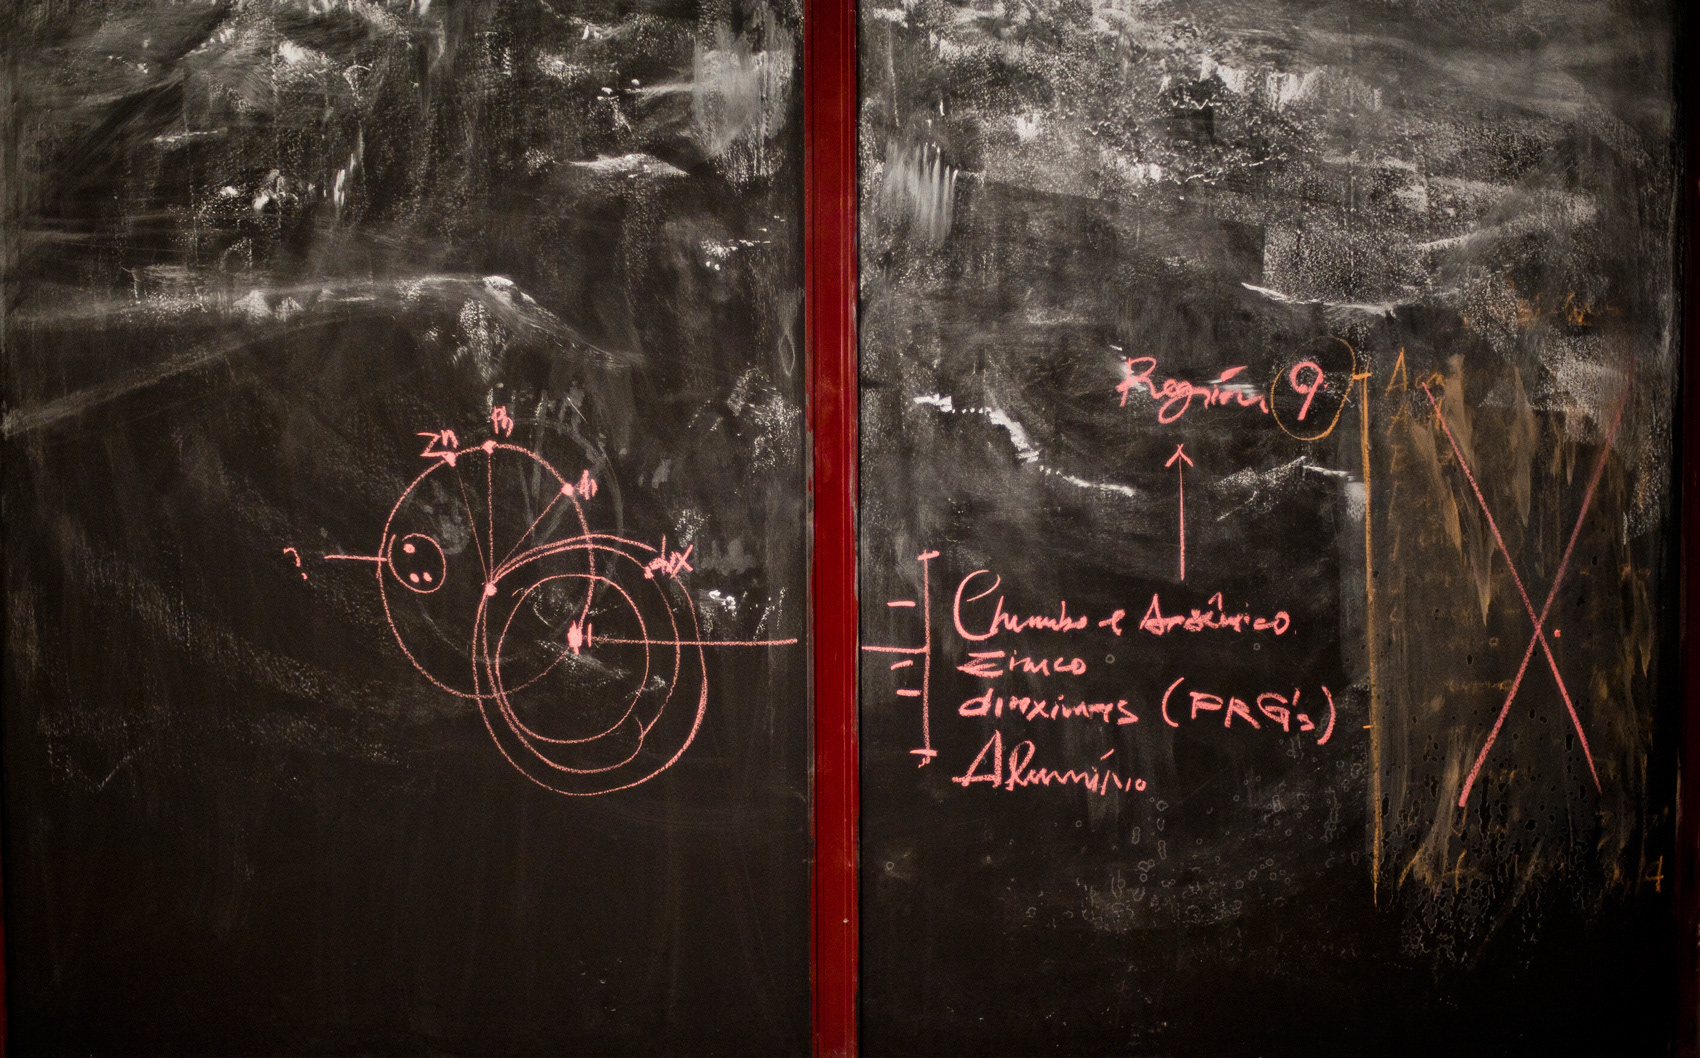 Zn
Pb
?
dix
Región 9
Chumbo e Arsênico
Zinco
dioxinas (PRG's)
Alumínio